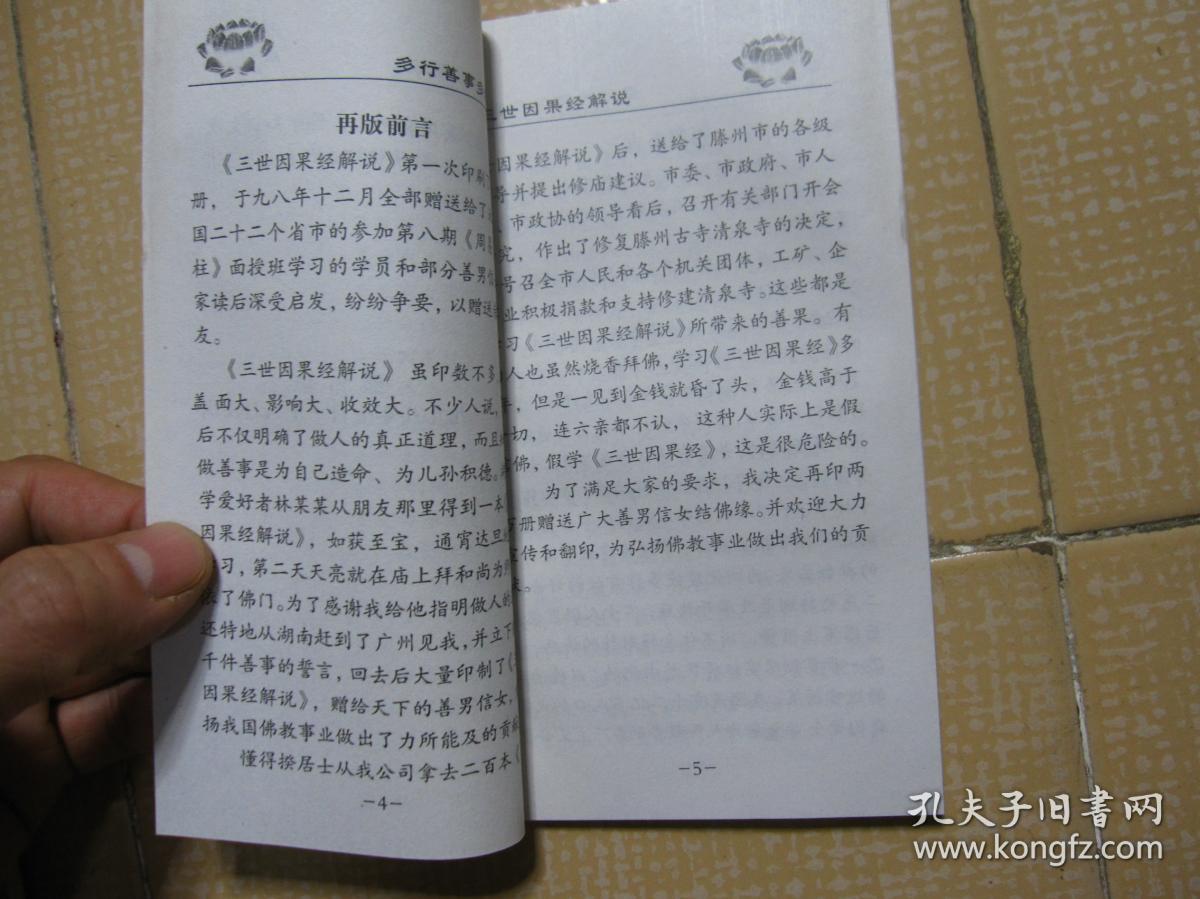 多行善事
再版前言
《三世因果经解说》第一次印刷
册，于九八年十二月全部赠送给了
国二十二个省市的参加第八期《周
柱》面授班学习的学员和部分善男
家读后深受启发，纷纷争要，以赠送
友。
《三世因果经解说》 虽印数不多
盖面大、影响大、收效大。不少人说，
后不仅明确了做人的真正道理，而且
做善事是为自己造命、为儿孙积德。
学爱好者林某某从朋友那里得到一本
因果经解说》，如获至宝，通宵达旦
习，第二天天亮就在庙上拜和尚为
依了佛门。为了感谢我给他指明做人的
还特地从湖南赶到了广州见我，并立下
千件善事的誓言，回去后大量印制了《
因果经解说》，赠给天下的善男信女，
扬我国佛教事业做出了力所能及的贡
懂得揆居士从我公司拿去二百本《
－4－
三世因果经解说
因果经解说》后，送给了滕州市的各级
导并提出修庙建议。市委、市政府、市人
市政协的领导看后，召开有关部门开会
究，作出了修复滕州古寺清泉寺的决定，
号召全市人民和各个机关团体，工矿、企
业积极捐款和支持修建清泉寺。这些都是
习《三世因果经解说》所带来的善果。有
人也虽然烧香拜佛，学习《三世因果经》多
年，但是一见到金钱就昏了头，金钱高于
一切，连六亲都不认，这种人实际上是假
佛，假学《三世因果经》，这是很危险的。
为了满足大家的要求，我决定再印两
册赠送广大善男信女结佛缘。并欢迎大力
宣传和翻印，为弘扬佛教事业做出我们的贡
－5－
孔夫子旧书网
www.kongfz.com